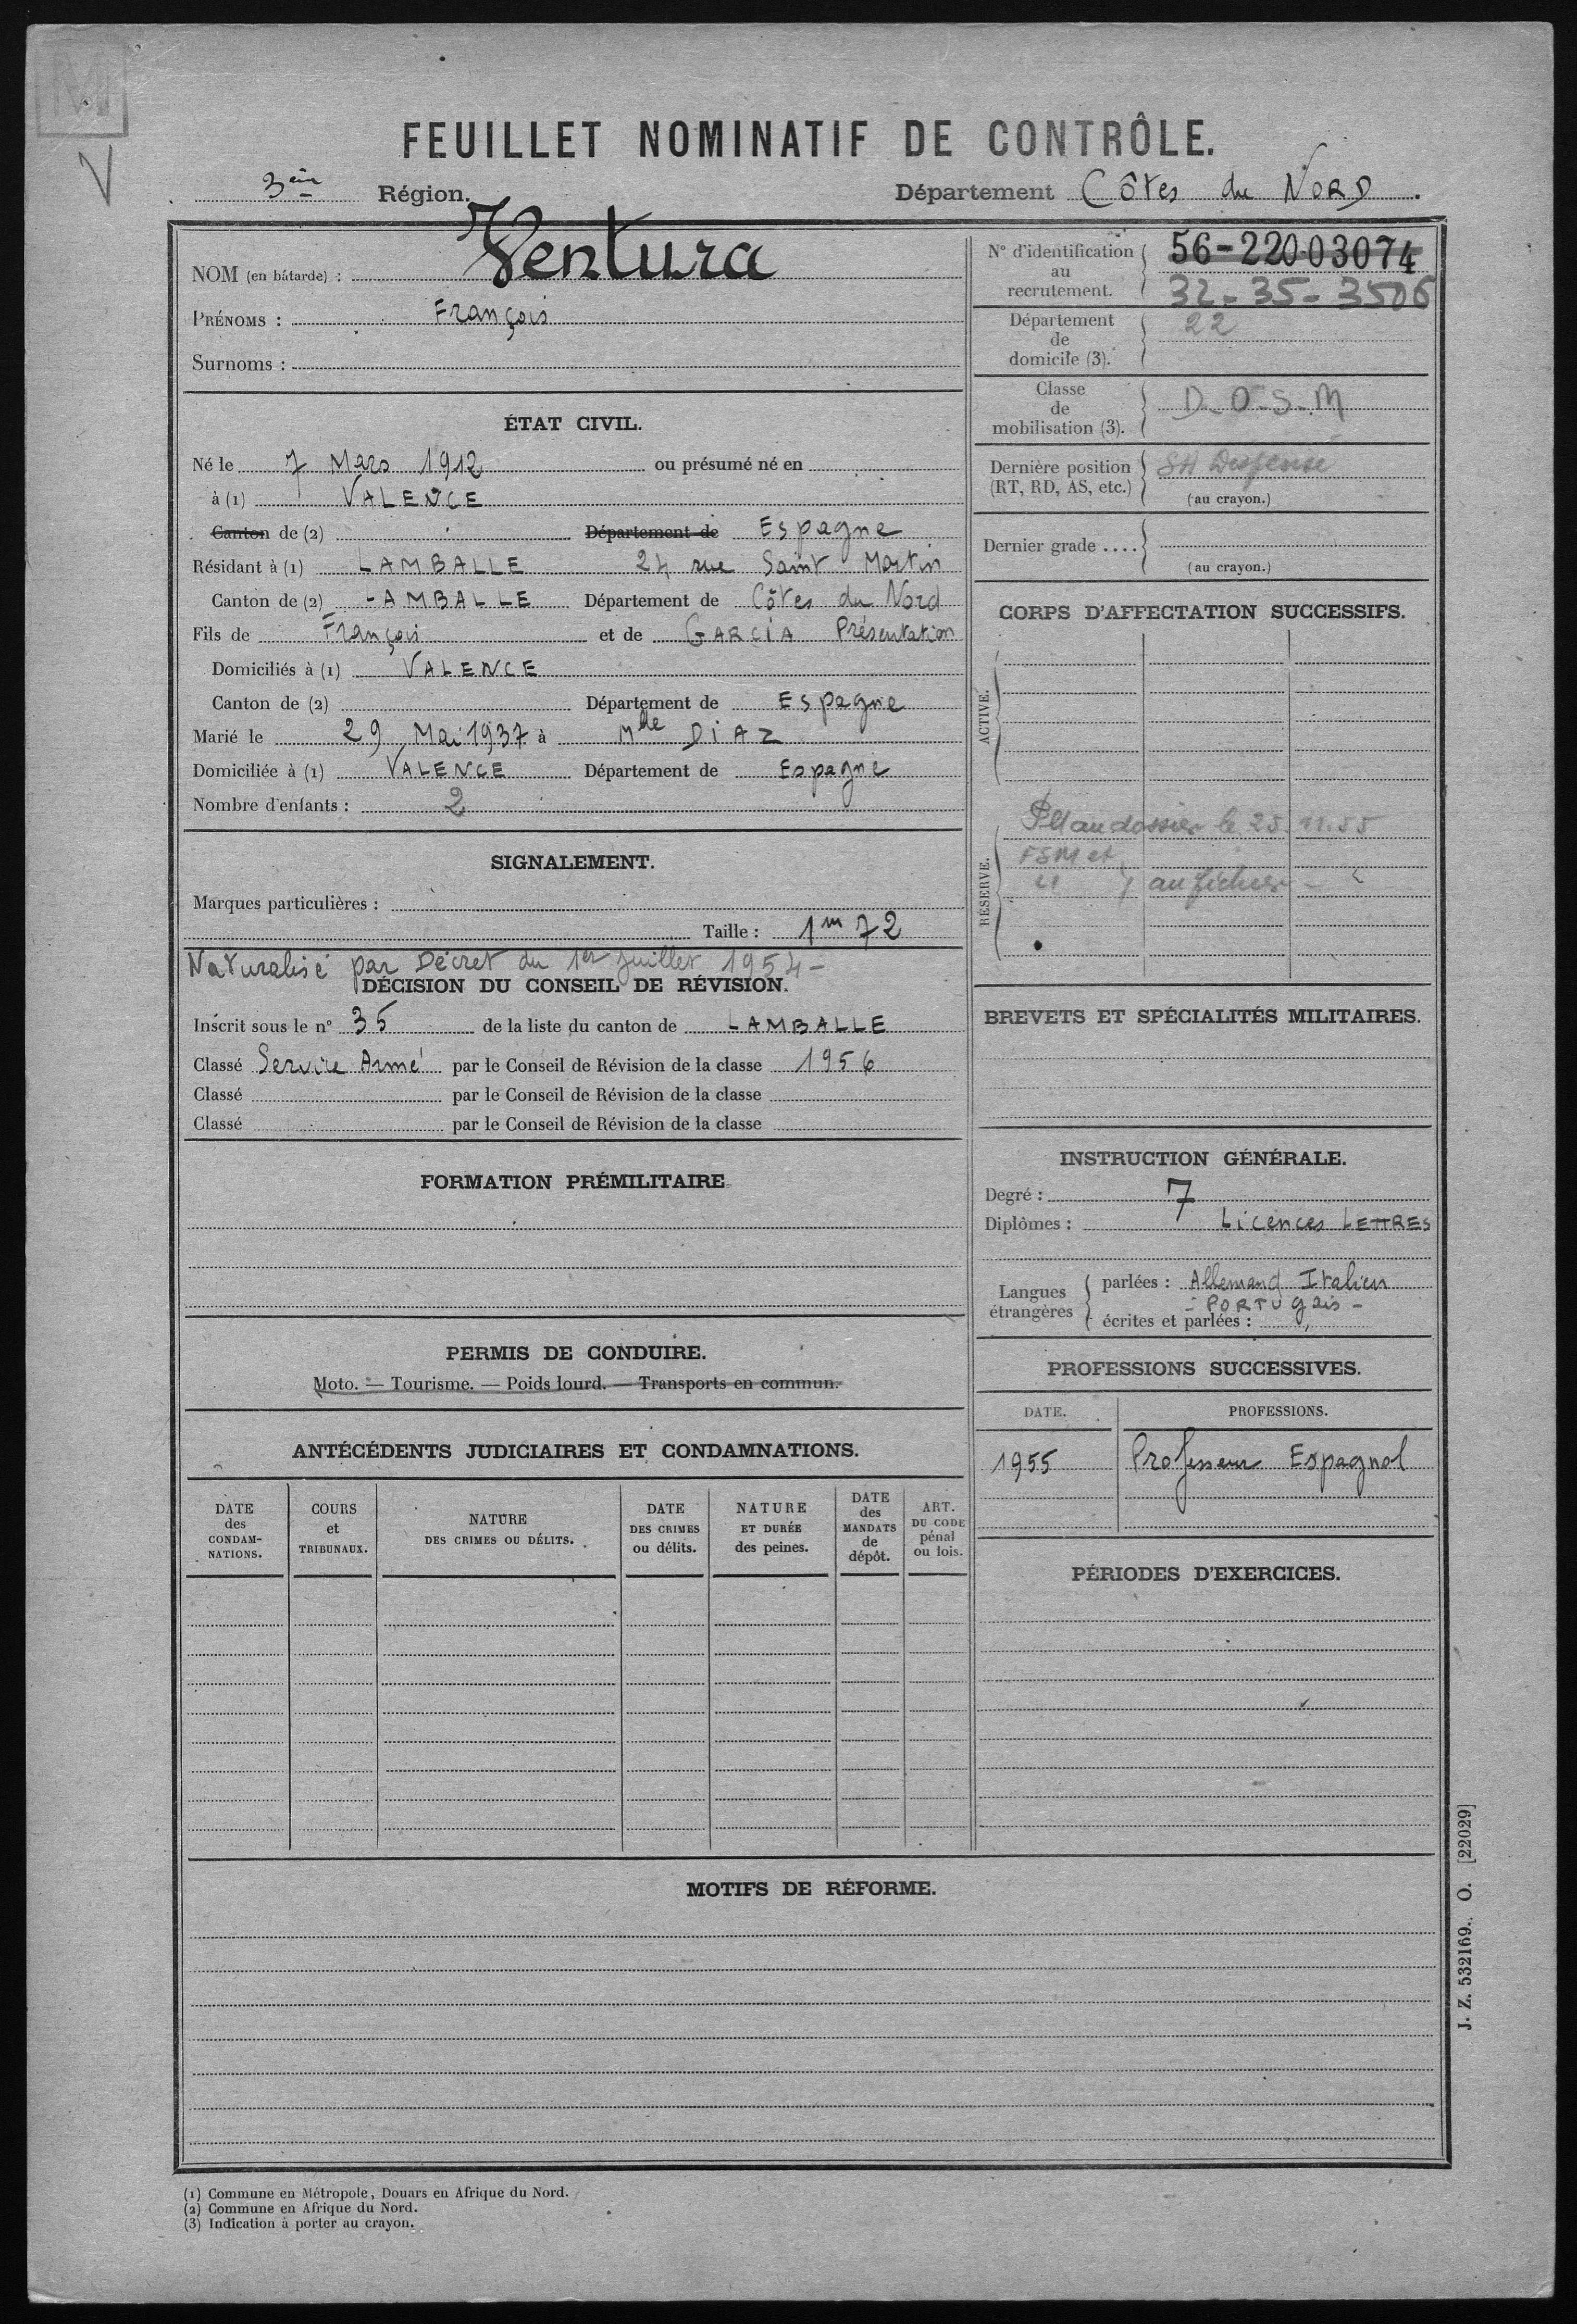 M
V
FEUILLET NOMINATIF DE CONTRÔLE.
3ème Région.
Département Côtes du NORD.
NOM (en bâtarde) : Ventura
PRÉNOMS : François
Surnoms :
ÉTAT CIVIL.
Né le 7 Mars 1912 ou présumé né en
à (1) VALENCE
Canton de (2) Département de Espagne
Résidant à (1) LAMBALLE 24 rue Saint Martin
Canton de (2) LAMBALLE Département de Côtes du Nord
Fils de François et de GARCIA Présentation
Domiciliés à (1) VALENCE
Canton de (2) Département de Espagne
Marié le 29 Mai 1937 à Mde DIAZ
Domiciliée à (1) VALENCE Département de Espagne
Nombre d'enfants : 2
SIGNALEMENT.
Marques particulières :
Taille : 1m 72
Naturalisé par Décret du 1er juillet 1954 -
DÉCISION DU CONSEIL DE RÉVISION.
Inscrit sous le n° 35 de la liste du canton de LAMBALLE
Classé Service Armé par le Conseil de Révision de la classe 1956
Classé par le Conseil de Révision de la classe
Classé par le Conseil de Révision de la classe
FORMATION PRÉMILITAIRE.
PERMIS DE CONDUIRE.
Moto. — Tourisme. — Poids lourd. — Transports en commun.
ANTÉCÉDENTS JUDICIAIRES ET CONDAMNATIONS.
DATE des CONDAM-NATIONS.
COURS et TRIBUNAUX.
NATURE DES CRIMES OU DÉLITS.
DATE DES CRIMES ou délits.
NATURE ET DURÉE des peines.
DATE des MANDATS de dépôt.
ART. DU CODE pénal ou lois.
N° d'identification au recrutement. 56-220-03074
32-35-3506
Département de domicile (3). 22
Classe de mobilisation (3). D-O-S-M
Dernière position (RT, RD, AS, etc.) SA
(au crayon.)
Dernier grade ....
(au crayon.)
CORPS D'AFFECTATION SUCCESSIFS.
ACTIVE.
RÉSERVE.
au dossier le 25.11.55
FSM et
au fichier -
BREVETS ET SPÉCIALITÉS MILITAIRES.
INSTRUCTION GÉNÉRALE.
Degré : 7
Diplômes : Licences LETTRES
Langues étrangères
parlées : Allemand Italien
- PORTUgais -
écrites et parlées :
PROFESSIONS SUCCESSIVES.
DATE. PROFESSIONS.
1955 Professeur Espagnol
PÉRIODES D'EXERCICES.
MOTIFS DE RÉFORME.
J. Z. 532169. O. [22029]
(1) Commune en Métropole, Douars en Afrique du Nord.
(2) Commune en Afrique du Nord.
(3) Indication à porter au crayon.